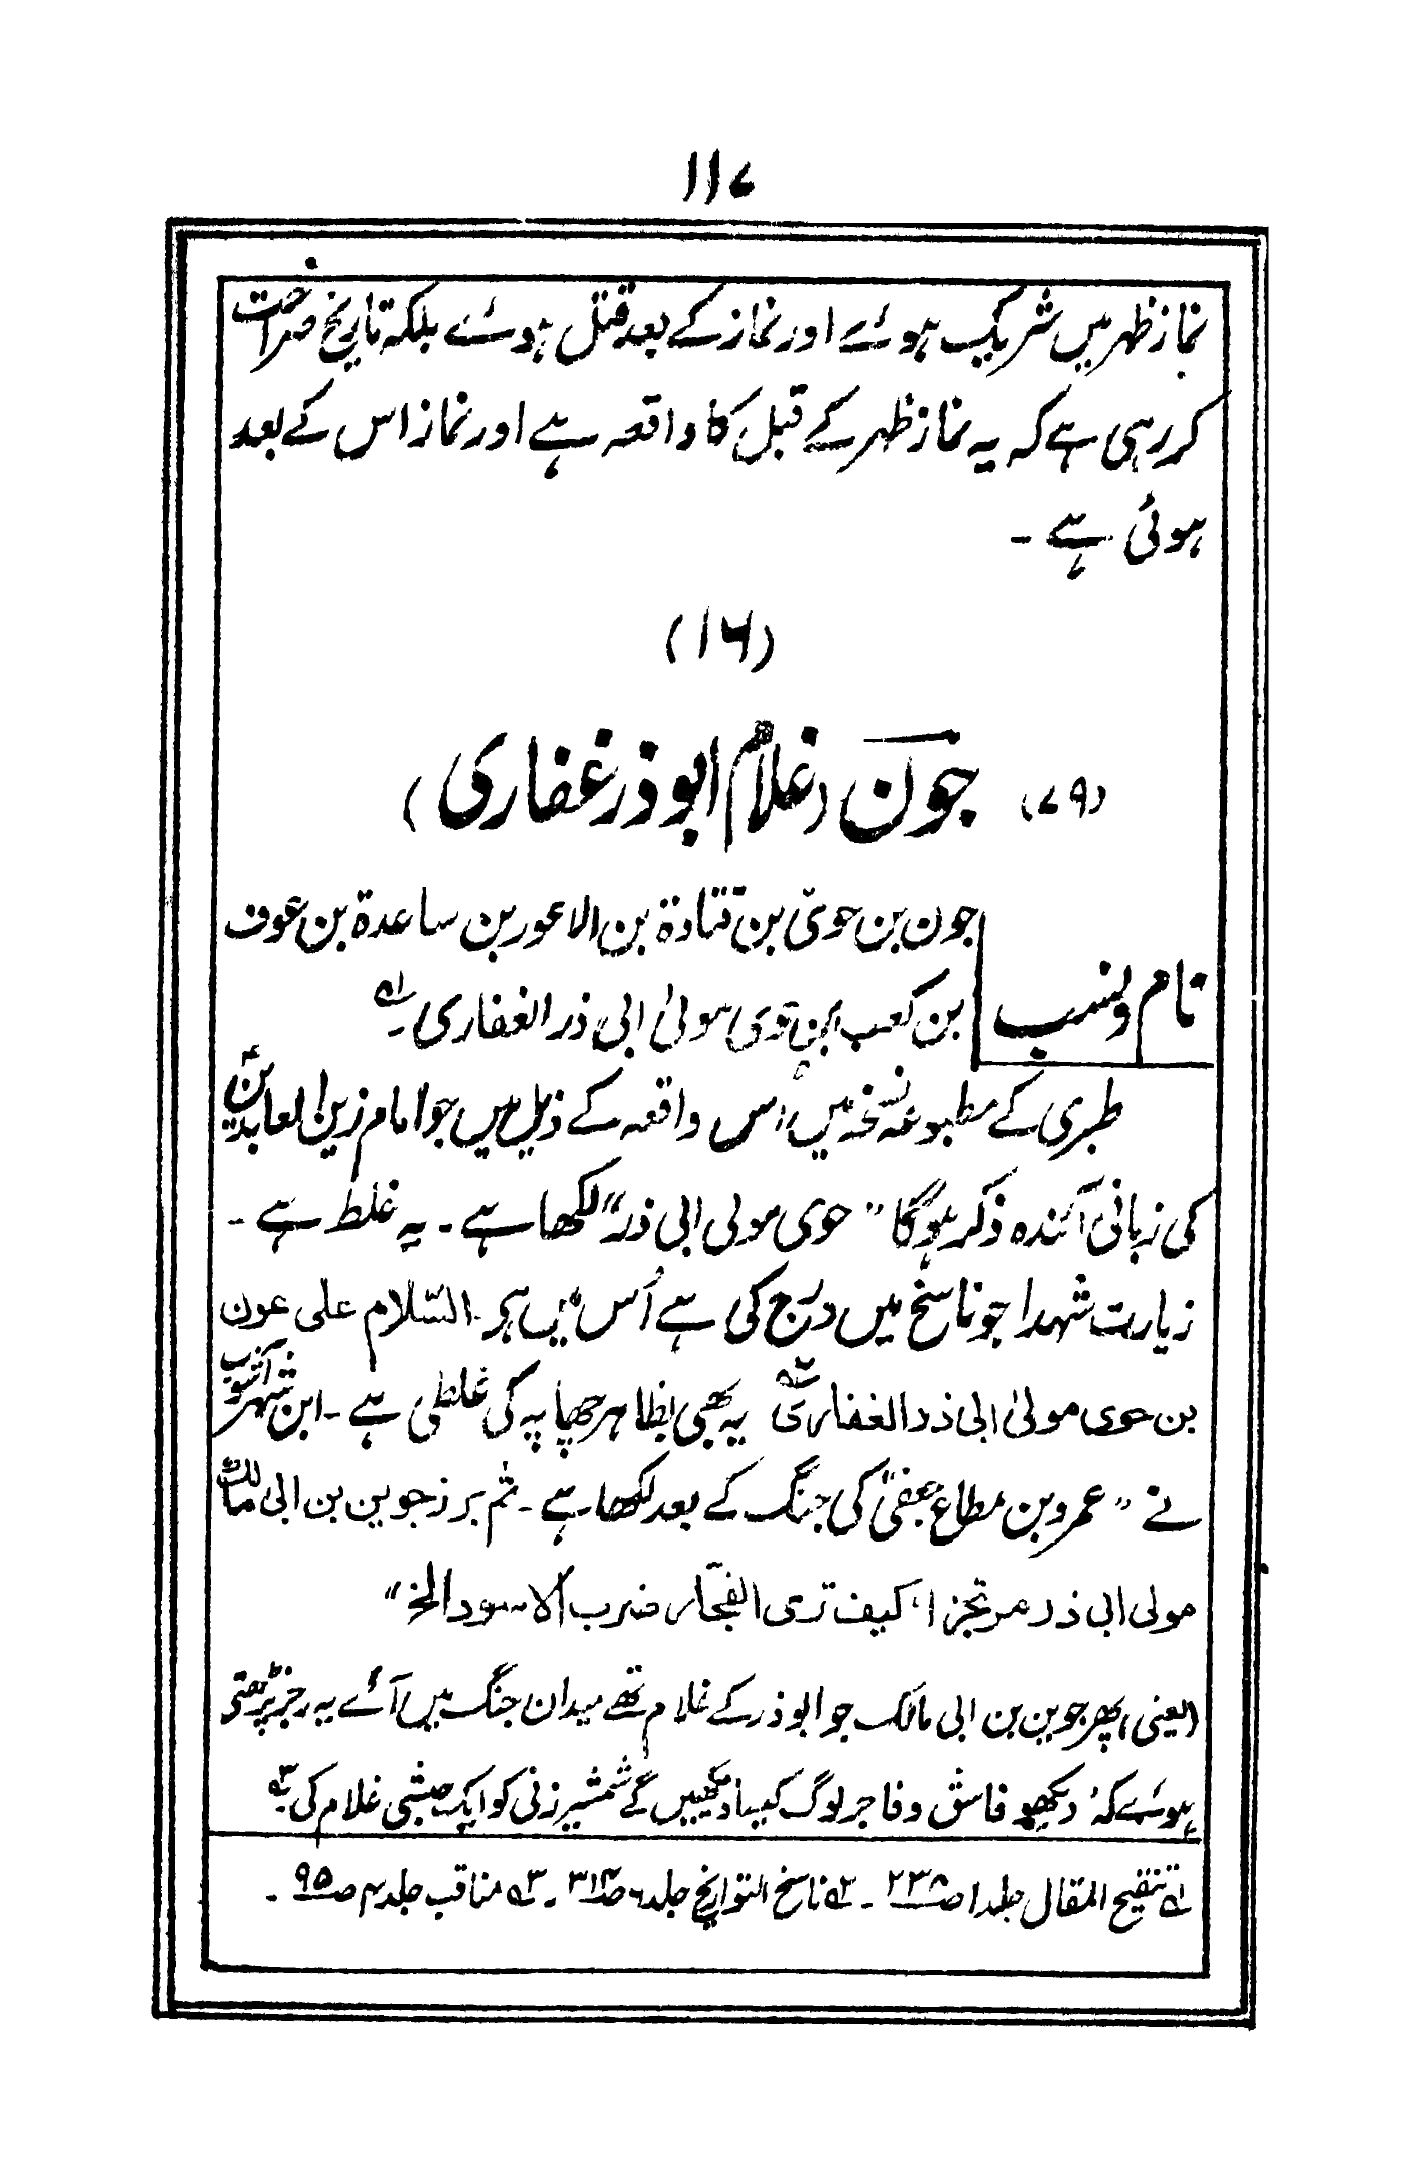 ۱۱۷
نماز ظہر میں شریک ہوئے اور نماز کے بعد قتل ہوئے بلکہ تاریخ صراحت
کر رہی ہے کہ یہ نماز ظہر کے قبل کا واقعہ ہے اور نماز اس کے بعد
ہوئی ہے ۔
(۱۶)
(۷۹) جون (غلام ابوذر غفاری)
نام و نسب
جون بن حوی بن قتادة بن الاعور بن ساعدة بن عوف
بن کعب بن حوی مولیٰ ابی ذر الغفاری ۔ ۱؎
طبری کے مطبوعہ نسخہ میں اس واقعہ کے ذیل میں جو امام زین العابدینؑ
کی زبانی آئندہ ذکر ہوگا ”حوی مولی ابی ذر“ لکھا ہے ۔ یہ غلط ہے ۔
زیارت شہدا جو ناسخ میں درج کی ہے اُس میں ہر ۔ السّلام علی عون
بن حوی مولیٰ ابی ذر الغفاری ۲؎ یہ بھی بظاہر چھاپہ کی غلطی ہے ۔ ابن شہر آشوب
نے ”عمرو بن مطاع جعفی کی جنگ کے بعد لکھا ہے ۔ ثم برز جوین بن ابی مالک
مولی ابی ذر مرتجزا، کیف تری الفجّار ضرب الاسود الخ“
(یعنی) پھر جوین بن ابی مالک جو ابوذر کے غلام تھے میدان جنگ میں آئے یہ رجز پڑھتے
ہوئے کہ ’دیکھو فاسق و فاجر لوگ کیسا دیکھیں گے شمشیر زنی کو ایک حبشی غلام کی ۳؎
۱؎ تنقیح المقال جلد ۱ صـ ۲۳۸ ۔ ۲؎ ناسخ التواریخ جلد ۶ صـ ۳۱۴ ۔ ۳؎ مناقب جلد ۴ صـ ۹۵ ۔